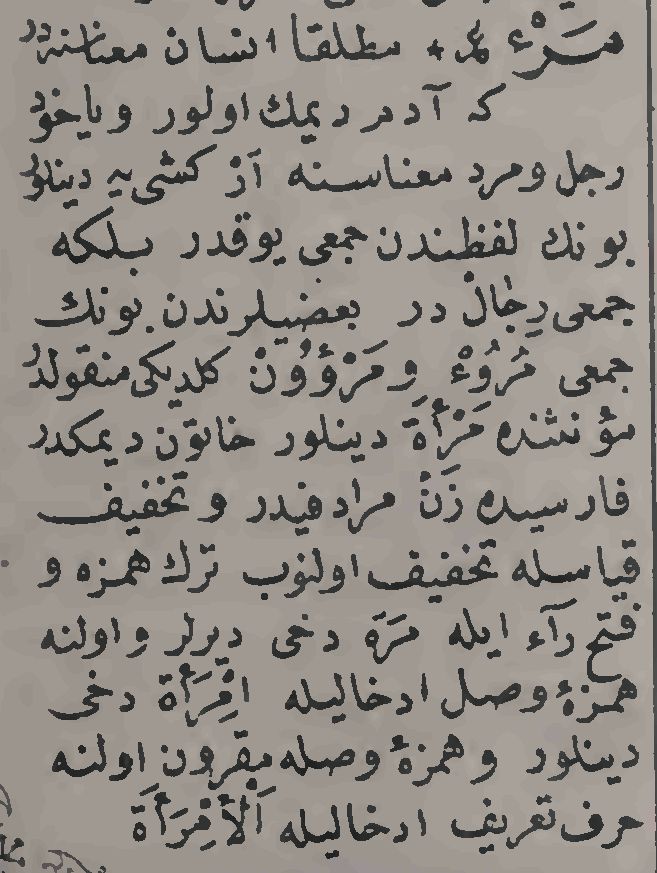 مَرْءْ مطلقا انسان معناسنه در
كه آدم ديمك اولور وياخود
رجل ومرد معناسنه آز كشى يه دينلور
بونك لفظندن جمعى يوقدر بلكه
جمعى رجال در بعضيلرندن بونك
جمعى مُرُوْءْ و مَرْؤُوْنْ كلديكى منقولدر
مؤنثنده مَرْأَةَ دينلور خاتون ديمكدر
فارسيده زَنْ مرادفيدر و تخفيف
قياسله تخفيف اولنوب ترك همزه و
فتح رآء ايله مَرَة دخى ديرلر و اولنه
همزۀ وصل ادخاليله اِمْرَأَة دخى
دينلور و همزۀ وصله مقرون اولنه
حرف تعريف ادخاليله اَلْاِمْرَأَة